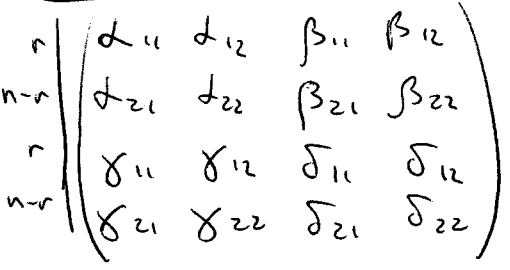 r α₁₁ α₁₂ β₁₁ β₁₂
n-r α₂₁ α₂₂ β₂₁ β₂₂
r γ₁₁ γ₁₂ δ₁₁ δ₁₂
n-r γ₂₁ γ₂₂ δ₂₁ δ₂₂